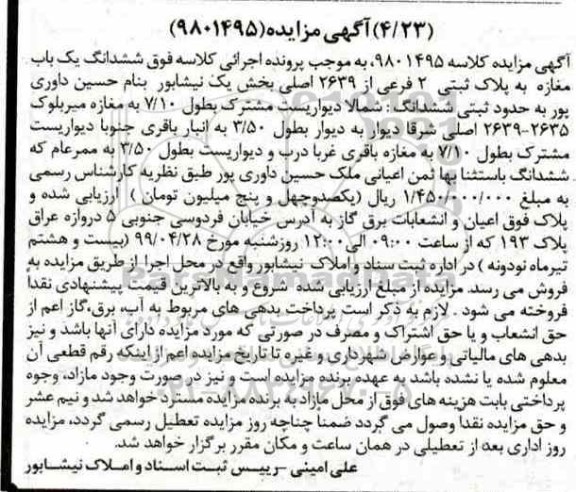 (۴/۲۳) آگهی مزایده (۹۸۰۱۴۹۵)
آگهی مزایده کلاسه ۹۸۰۱۴۹۵، به موجب پرونده اجرائی کلاسه فوق ششدانگ یک باب
مغازه به پلاک ثبتی ۲ فرعی از ۲۶۳۹ اصلی بخش یک نیشابور بنام حسین داوری
پور به حدود ثبتی ششدانگ: شمالا دیواریست مشترک بطول ۷/۱۰ به مغازه میربلوک
۲۶۳۵-۲۶۳۹ اصلی شرقا دیوار به دیوار بطول ۳/۵۰ به انبار باقری جنوبا دیواریست
مشترک بطول ۷/۱۰ به مغازه باقری غربا درب و دیواریست بطول ۳/۵۰ به ممرعام که
ششدانگ باستثنا بها ثمن اعیانی ملک حسین داوری پور طبق نظریه کارشناس رسمی
به مبلغ ۱/۴۵۰/۰۰۰/۰۰۰ ریال (یکصدوچهل و پنج میلیون تومان) ارزیابی شده و
پلاک فوق اعیان و انشعابات برق گاز به آدرس خیابان فردوسی جنوبی ۵ دروازه عراق
پلاک ۱۹۳ که از ساعت ۰۹:۰۰ الی ۱۲:۰۰ روزشنبه مورخ ۹۹/۰۴/۲۸ (بیست و هشتم
تیرماه نودونه) در اداره ثبت سناد و املاک نیشابور واقع در محل اجرا از طریق مزایده به
فروش می رسد. مزایده از مبلغ ارزیابی شده شروع و به بالاترین قیمت پیشنهادی نقداً
فروخته می شود. لازم به ذکر است پرداخت بدهی های مربوط به آب، برق،گاز اعم از
حق انشعاب و یا حق اشتراک و مصرف در صورتی که مورد مزایده دارای آنها باشد و نیز
بدهی های مالیاتی و عوارض شهرداری و غیره تا تاریخ مزایده اعم از اینکه رقم قطعی آن
معلوم شده یا نشده باشد به عهده برنده مزایده است و نیز در صورت وجود مازاد، وجوه
پرداختی بابت هزینه های فوق از محل مازاد به برنده مزایده مسترد خواهد شد و نیم عشر
و حق مزایده نقدا وصول می گردد ضمنا چناچه روز مزایده تعطیل رسمی گردد، مزایده
روز اداری بعد از تعطیلی در همان ساعت و مکان مقرر برگزار خواهد شد.
علی امینی -رییس ثبت اسناد و املاک نیشابور